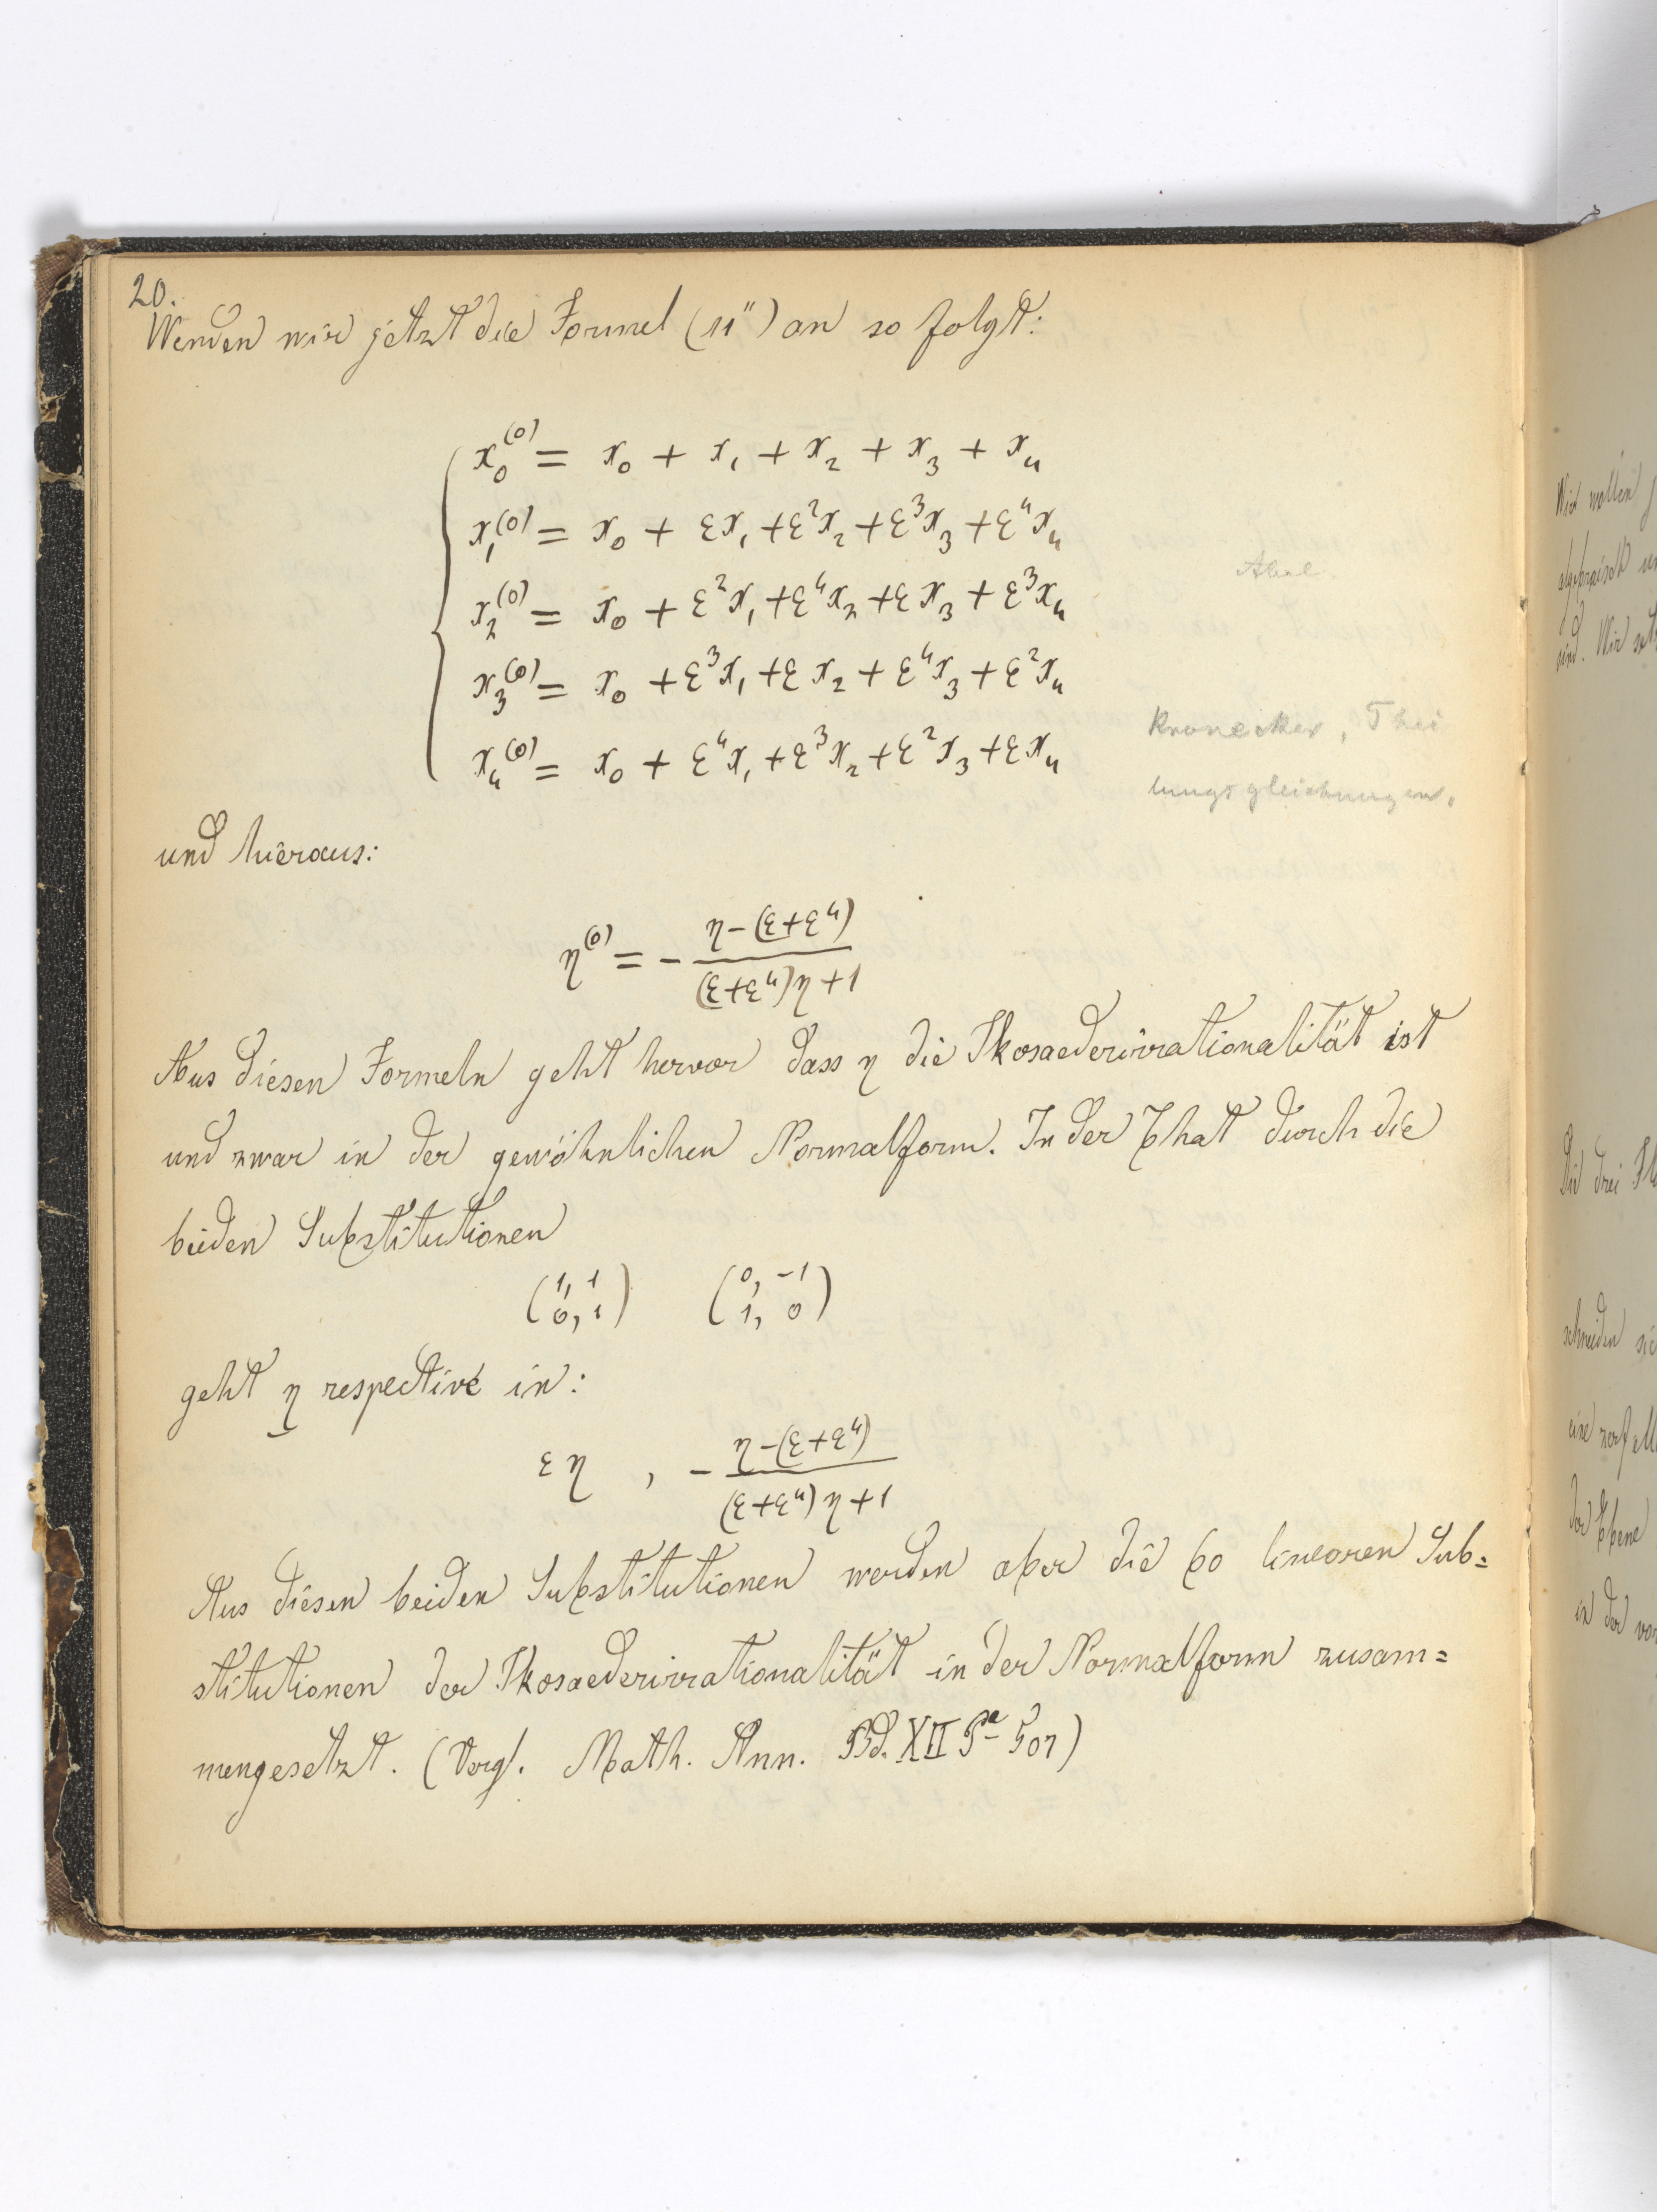 20.
Wenden wir jetzt die Formel (11'') an so folgt:
x₀⁽⁰⁾ = x₀ + x₁ + x₂ + x₃ + x₄
x₁⁽⁰⁾ = x₀ + εx₁ + ε²x₂ + ε³x₃ + ε⁴x₄
Abel
x₂⁽⁰⁾ = x₀ + ε²x₁ + ε⁴x₂ + εx₃ + ε³x₄
x₃⁽⁰⁾ = x₀ + ε³x₁ + εx₂ + ε⁴x₃ + ε²x₄
x₄⁽⁰⁾ = x₀ + ε⁴x₁ + ε³x₂ + ε²x₃ + εx₄
Kronecker, Thei
lungsgleichungen.
und hieraus:
η⁽⁰⁾ = - (η-(ε+ε⁴)) / ((ε+ε⁴)η+1)
Aus diesen Formeln geht hervor dass η die Ikosaederirrationalität ist
und zwar in der gewöhnlichen Normalform. In der That durch die
beiden Substitutionen
(1, 1 / 0, 1) (0, -1 / 1, 0)
geht η respective in:
εη , - (η-(ε+ε⁴)) / ((ε+ε⁴)η+1)
Aus diesen beiden Substitutionen werden aber die 60 linearen Sub=
stitutionen der Ikosaederirrationalität in der Normalform zusam=
mengesetzt. (Vergl. Math. Ann. Bd. XII Pa 507)
Wir wollen
algebraisch
sind. Wir
Die drei
schneiden
eine
der Ebene
in der